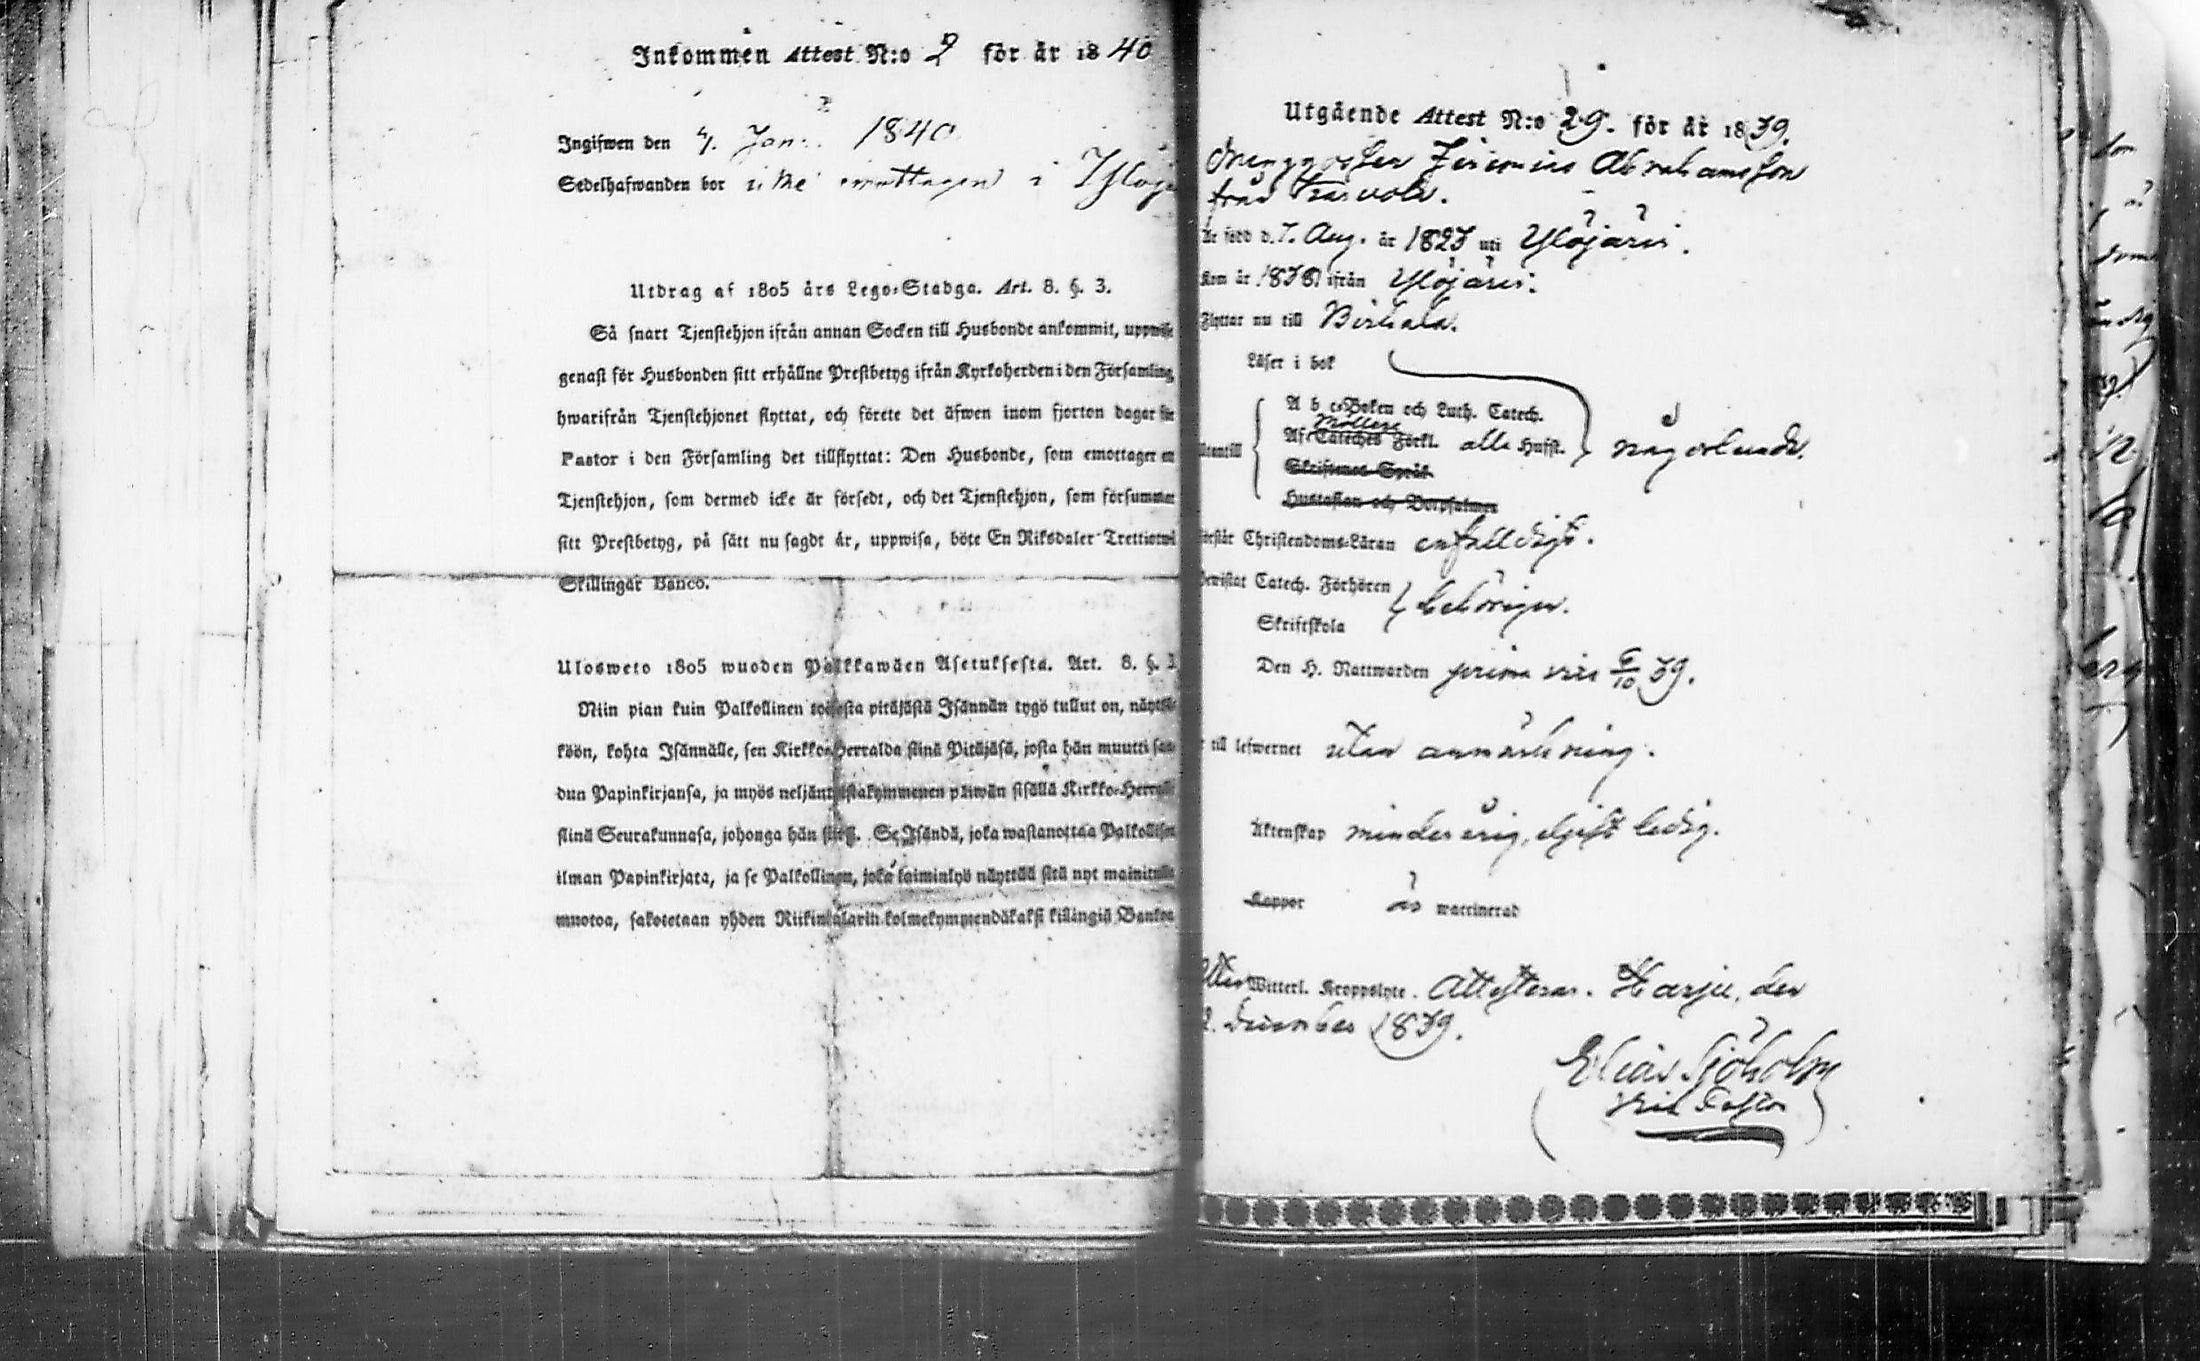 Inkommen Attest N:o 2 för år 1840
Ingifwen den 4/1 Jan: 1840
Sedelhafwanden bor icke emottagen i Ylöjä
Utdrag af 1805 års Lego-Stadga. Art. 8. §. 3.
Så snart Tjenstehjon ifrån annan Socken till Husbonde ankommit, uppwise
genast för Husbonden sitt erhållne Prestbetyg ifrån Kyrkoherden i den Församling,
hwarifrån Tjenstehjonet flyttat, och förete det äfwen inom fjorton dagar för
Pastor i den Församling det tillflyttat: Den Husbonde, som emottager en
Tjenstehjon, som dermed icke är försedt, och det Tjenstehjon, som försummar
sitt Prestbetyg, på sätt nu sagdt är, uppwisa, böte En Riksdaler Trettiotwå
Skillingar Banco.
Ulosweto 1805 wuoden Palkkawäen Asetuksesta. Art. 8. §. 3
Niin pian kuin Palkollinen toisesta pitäjästä Isännän tygö tullut on, näyttä-
köön, kohta Isännälle, sen Kirkko-Herralda siinä Pitäjäsä, josta hän muutti saa-
dun Papinkirjansa, ja myös neljäntoistakymmenen päiwän sisällä Kirkko-Herralle
siinä Seurakunnasa, johonga hän siirsi. Se Isändä, joka wastanottaa Palkollisen
ilman Papinkirjata, ja se Palkollinen, joka laiminlyö näyttää sitä nyt mainitulla
muotoa, sakotetaan yhden Riikintalarin kolmekymmendäkaksi killingiä Bankoa
Utgående Attest N:o 29. för år 1839.
Drenggossen Jeremias Abrahamsson
från
Är född d. 7. Aug. år 1823 uti Ylöjärvi.
Kom år 1838 ifrån Ylöjärvi.
Flyttar nu till Birkala.
Läser i bok
A b c-Boken och Luth. Catech.
Möllers
Utantill Af Cateches Förkl. alla Hufst. någorlunda.
Skriftenes Språk
Hustaflan och Botpsalmer
Förstår Christendoms-Läran enfaldigt.
Bewistat Catech. Förhören
behörigen.
Skriftskola
Den H. Nattwarden prima vice 6/10 39.
till lefwernet utan anmärkning.
Äktenskap minderårig, ogift ledig.
Koppor är waccinerad
Utan Witterl. Kroppslyte. Attesteras. Harju, den
2. December 1839.
Elias Sjöholm
Vice Pastor